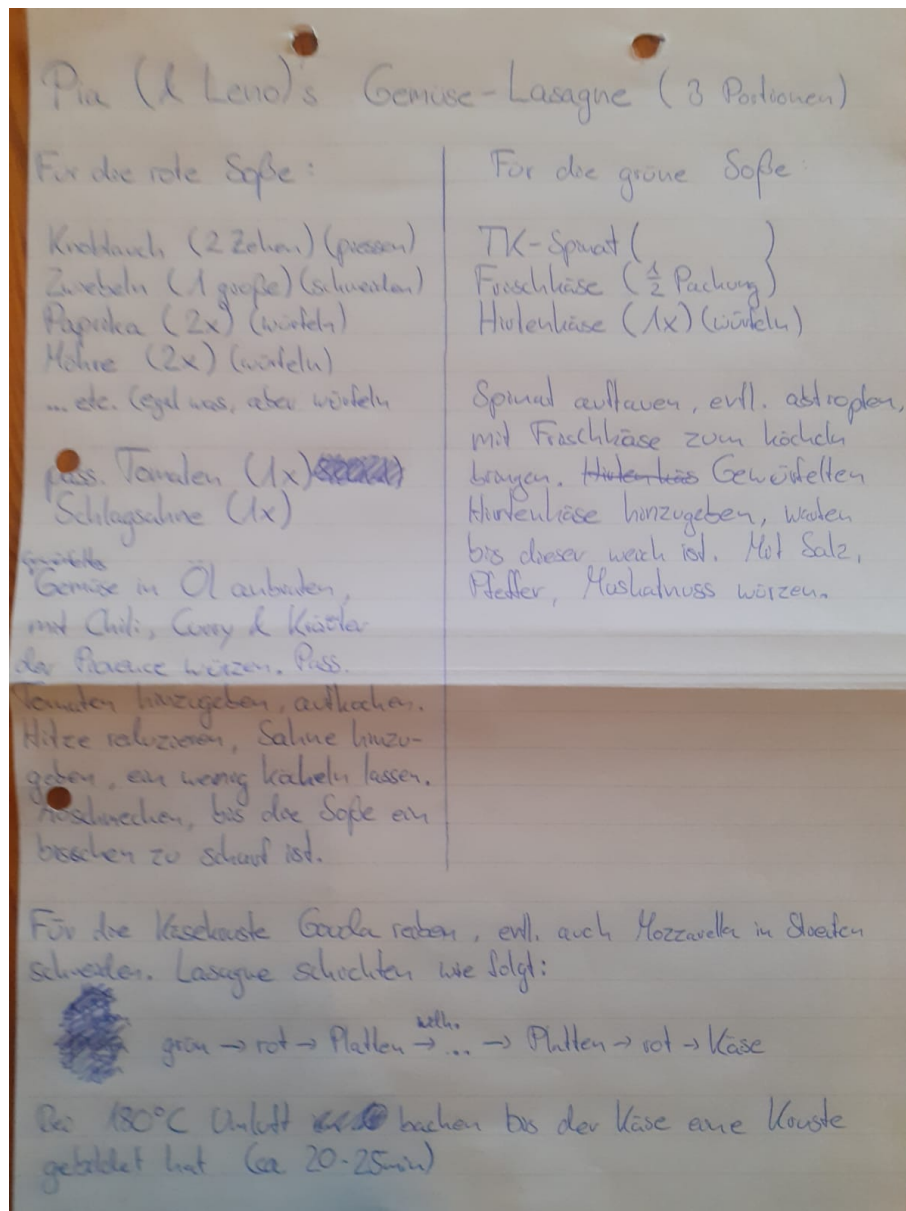 Pia (& Leno)'s Gemüse-Lasagne (3 Portionen)
Für die rote Soße:
Knoblauch (2 Zehen) (pressen)
Zwiebeln (1 große) (schneiden)
Paprika (2x) (würfeln)
Möhre (2x) (würfeln)
... etc. (egal was, aber würfeln
pass. Tomaten (1x)
Schlagsahne (1x)
gewürfeltes
Gemüse in Öl anbraten,
mit Chili, Curry & Kräuter
der Provence würzen. Pass.
Tomaten hinzugeben, aufkochen.
Hitze reduzieren, Sahne hinzu-
geben, ein wenig köcheln lassen.
Abschmecken, bis die Soße ein
bisschen zu scharf ist.
Für die grüne Soße:
TK-Spinat ( )
Frischkäse (½ Packung)
Hirtenkäse (1x) (würfeln)
Spinat auftauen, evtl. abtropfen,
mit Frischkäse zum köcheln
bringen. Gewürfelten
Hirtenkäse hinzugeben, warten
bis dieser weich ist. Mit Salz,
Pfeffer, Muskatnuss würzen.
Für die Käsekruste Gouda reiben, evtl. auch Mozzarella in Streifen
schneiden. Lasagne schichten wie folgt:
grün → rot → Platten → ... → Platten → rot → Käse
Bei 180°C Umluft backen bis der Käse eine Kruste
gebildet hat (ca 20-25min)